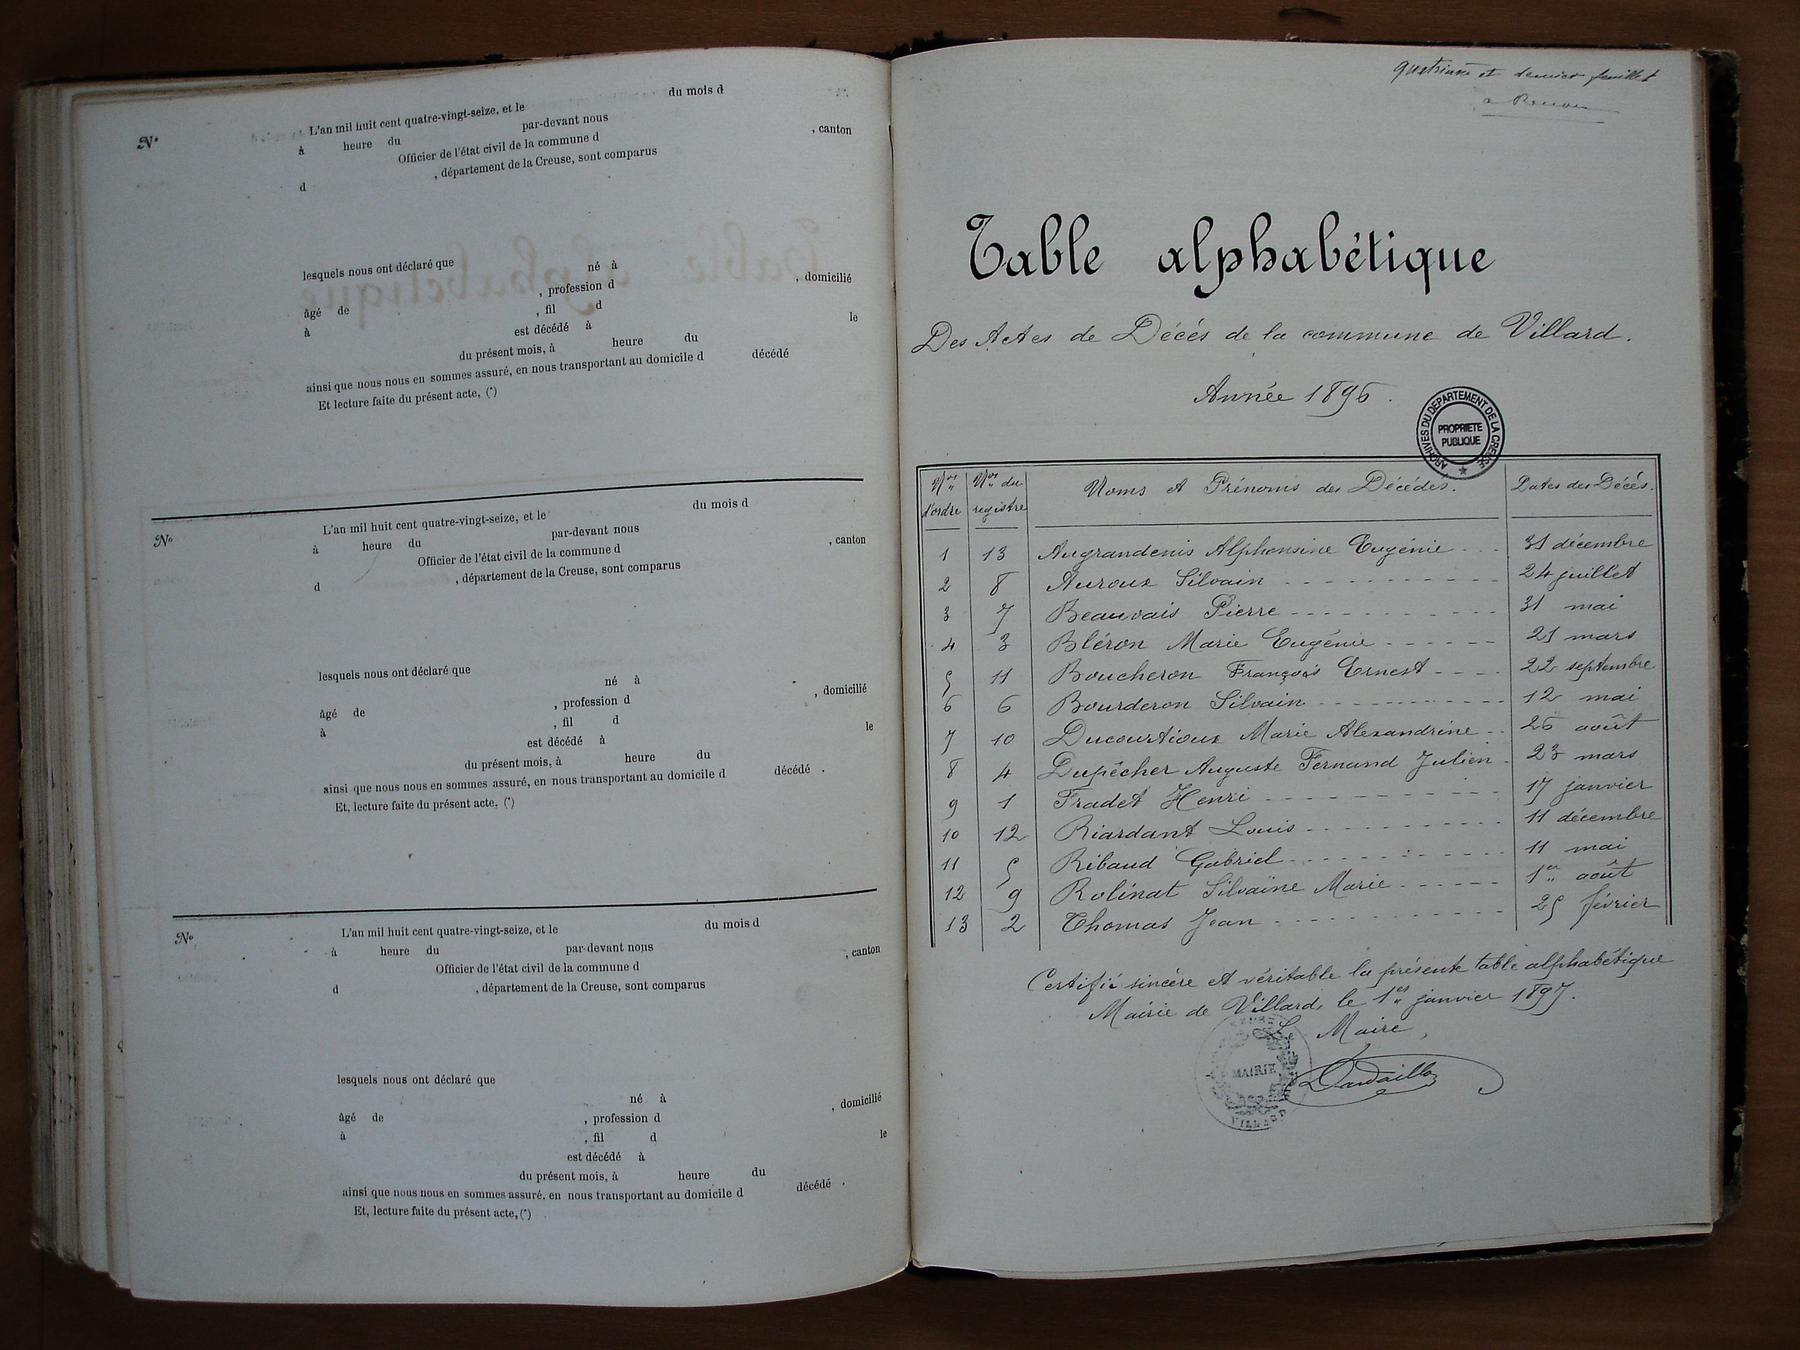 N°
L'an mil huit cent quatre-vingt-seize, et le du mois d
à heure du par-devant nous
Officier de l'état civil de la commune d , canton
d , département de la Creuse, sont comparus
lesquels nous ont déclaré que
né à
âgé de , profession d , domicilié
à , fil d
est décédé à le
du présent mois, à heure du
ainsi que nous nous en sommes assuré, en nous transportant au domicile d décédé
Et lecture faite du présent acte, (*)
N°
L'an mil huit cent quatre-vingt-seize, et le du mois d
à heure du par-devant nous
Officier de l'état civil de la commune d , canton
d , département de la Creuse, sont comparus
lesquels nous ont déclaré que
né à
âgé de , profession d , domicilié
à , fil d
est décédé à le
du présent mois, à heure du
ainsi que nous nous en sommes assuré, en nous transportant au domicile d décédé .
Et, lecture faite du présent acte, (*)
N°
L'an mil huit cent quatre-vingt-seize, et le du mois d
à heure du par-devant nous
Officier de l'état civil de la commune d , canton
d , département de la Creuse, sont comparus
lesquels nous ont déclaré que
né à
âgé de , profession d , domicilié
à , fil d
est décédé à le
du présent mois, à heure du
ainsi que nous nous en sommes assuré, en nous transportant au domicile d décédé .
Et, lecture faite du présent acte, (*)
et dernier feuillet
Table alphabétique
Des Actes de Décès de la commune de Villard.
Année 1896.
ARCHIVES DU DEPARTEMENT DE LA CREUSE
PROPRIETE
PUBLIQUE
Nos d'ordre Nos du registre Noms et Prénoms des Décédés. Dates des Décés.
1 13 Augrandenis Alphonsine Eugénie 31 décembre
2 8 Auroux Silvain 24 juillet
3 7 Beauvais Pierre 31 mai
4 3 Bléron Marie Eugénie 21 mars
5 11 Boucheron François Ernest 22 septembre
6 6 Bourderon Silvain 12 mai
7 10 Ducourtioux Marie Alexandrine 26 août
8 4 Dupêcher Auguste Fernand Julien 23 mars
9 1 Fradet Henri 17 janvier
10 12 Riardant Louis 11 décembre
11 5 Ribaud Gabriel 11 mai
12 9 Rolinat Silvaine Marie 1er août
13 2 Thomas Jean 25 février
Certifié sincère et véritable la présente table alphabétique
Mairie de Villard, le 1er janvier 1897.
Le Maire,
MAIRIE
VILLARD